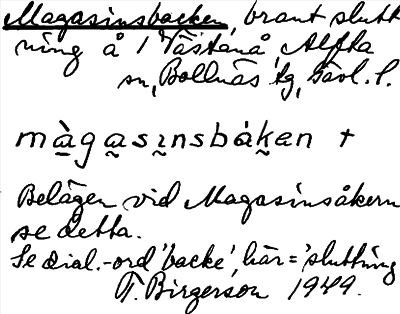 Magasinsbacken, brant slutt
ning å 1 Västanå, Alfta
sn, Bollnäs tg, Gävl. l.
màgasinsbáken +
Belägen vid Magasinsåkern
se detta.
Se dial.-ord 'backe', här = 'sluttning
T. Birgerson 1949.